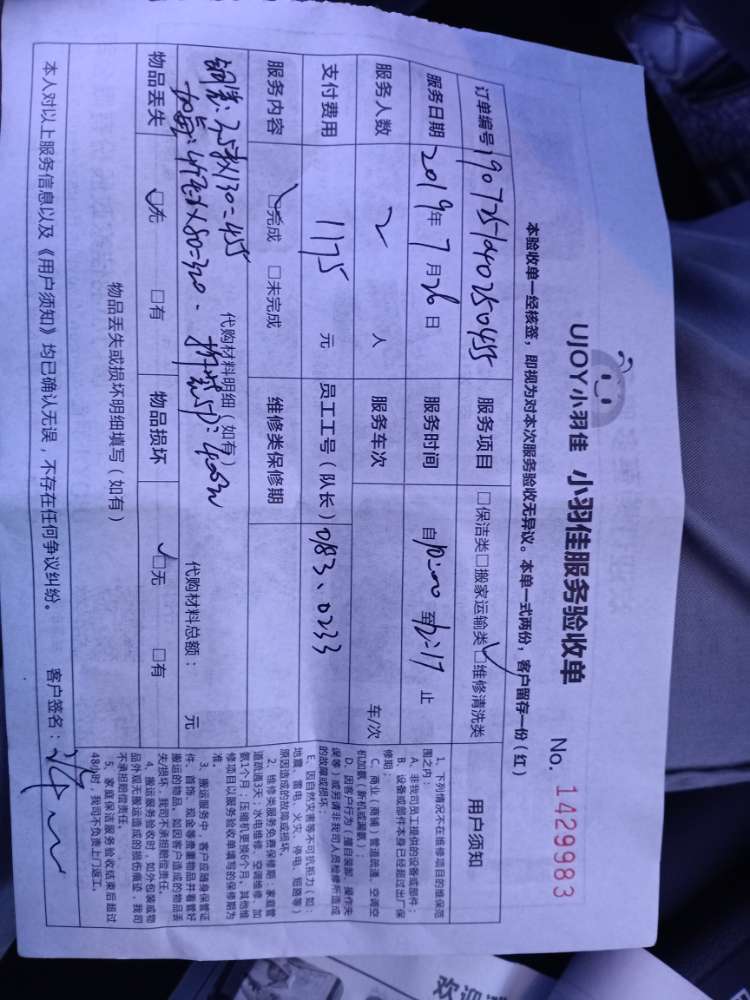 UJOY小羽佳 小羽佳服务验收单
No. 1429983
本验收单一经核签，即视为对本次服务验收无异议。本单一式两份，客户留存一份（红）
订单编号 190725140250455 服务项目 □保洁类□搬家运输类□维修清洗类
服务日期 2019年7月26日 服务时间 自10:00至12:17止
服务人数 2 人 服务车次 车/次
支付费用 1175 元 员工工号（队长） 0183、0233
服务内容 □完成 □未完成 维修类保修期
代购材料明细（如有） 代购材料总额： 元
铜管：3.5米×130=455
加氟：4×80=320.
5P：400
物品丢失 □无 □有 物品损坏 □无 □有
物品丢失或损坏明细填写（如有）
本人对以上服务信息以及《用户须知》均已确认无误，不存在任何争议纠纷。 客户签名：
用户须知
1、下列情况不在维修项目的维保范
围之内：
A、非我司员工提供的设备或部件；
B、设备或部件本身已经超过出厂保
修期；
C、商业（商铺）管道疏通、空调空
机加氨（新机或漏氨）；
D、因客户行为（擅自装卸、操作失
误等）或另请非我司人员检修所造成
的故障或损坏；
E、因自然灾害等不可抗拒力（如：
地震、雷电、火灾、停电、短路等）
原因造成的故障或损坏。
2、维修类服务免费保修期：家庭管
道疏通3天；水电维修、空调维修、加
氨1个月；压缩机更换6个月，其他维
修项目以服务验收单填写的保修期为
准。
3、搬运服务中，客户应随身保管证
件、首饰、现金等贵重物品并看管好
搬运的物品，如因客户造成的物品丢
失/损坏，我司不承担赔偿责任。
4、搬运服务验收时，如外包装或物
品外观无搬运造成的损伤痕迹，我司
不承担赔偿责任。
5、家庭保洁服务验收结束后超过
48小时，我司不负责上门返工。
欢迎